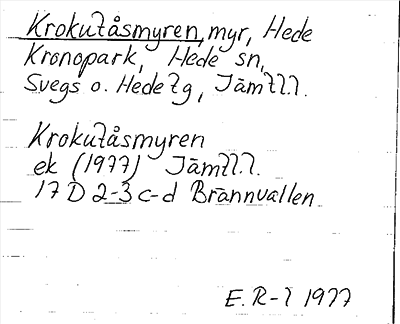 Krokutåsmyren, myr, Hede
Kronopark, Hede sn,
Svegs o. Hede tg, Jämtl.l.
Krokutåsmyren
ek (1977) Jämtl.l.
17 D 2-3 c-d Brännvallen
E. R-l 1977